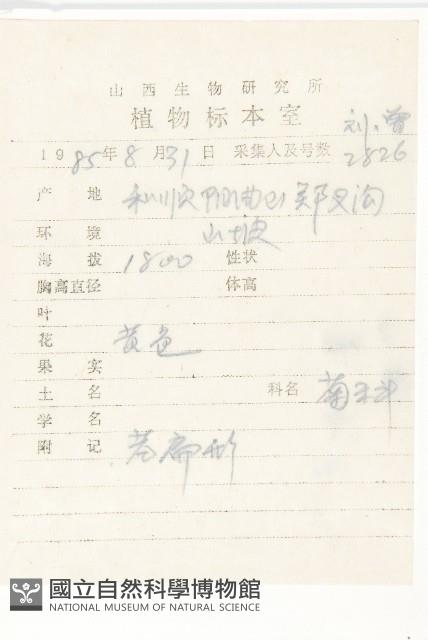 山西生物研究所
植物标本室
刘、曾
1985年8月31日 采集人及号数 2826
产地 和顺
环境 山坡
海拔 1800 性状
胸高直径 体高
叶
花 黄色
果实
土名 科名 菊科
学名
附记
國立自然科學博物館
NATIONAL MUSEUM OF NATURAL SCIENCE